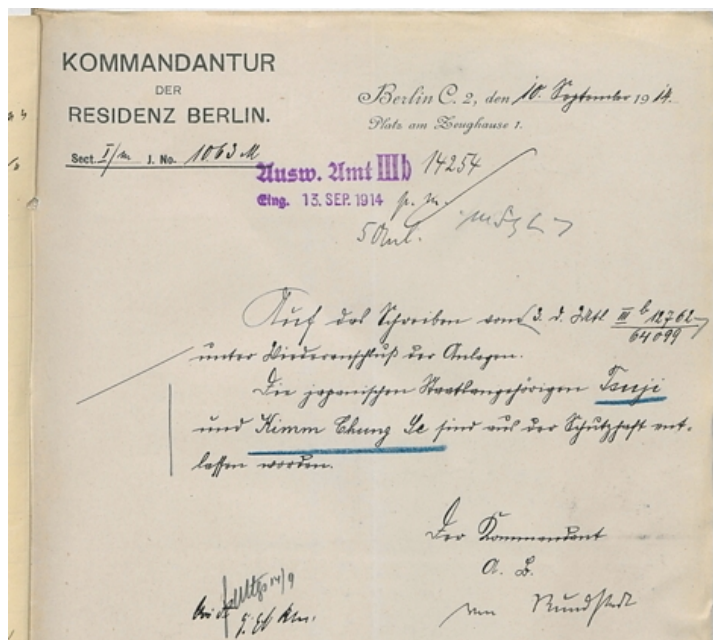 KOMMANDANTUR
DER
RESIDENZ BERLIN.
Sect. I/m J. No. 1063 M
Berlin C. 2, den 10. September 1914.
Platz am Zeughause 1.
Ausw. Amt III b 14254
Eing. 13. SEP. 1914 p. m.
5 Anl.
Auf das Schreiben vom 3. d. Mts III b 12762
64099
unter Wiederanschluß der Anlagen.
Die japanischen Staatsangehörigen Tsuji
und Kimm Chung Se sind aus der Schutzhaft ent-
lassen worden.
Der Kommandant
A. B.
von Rundstedt